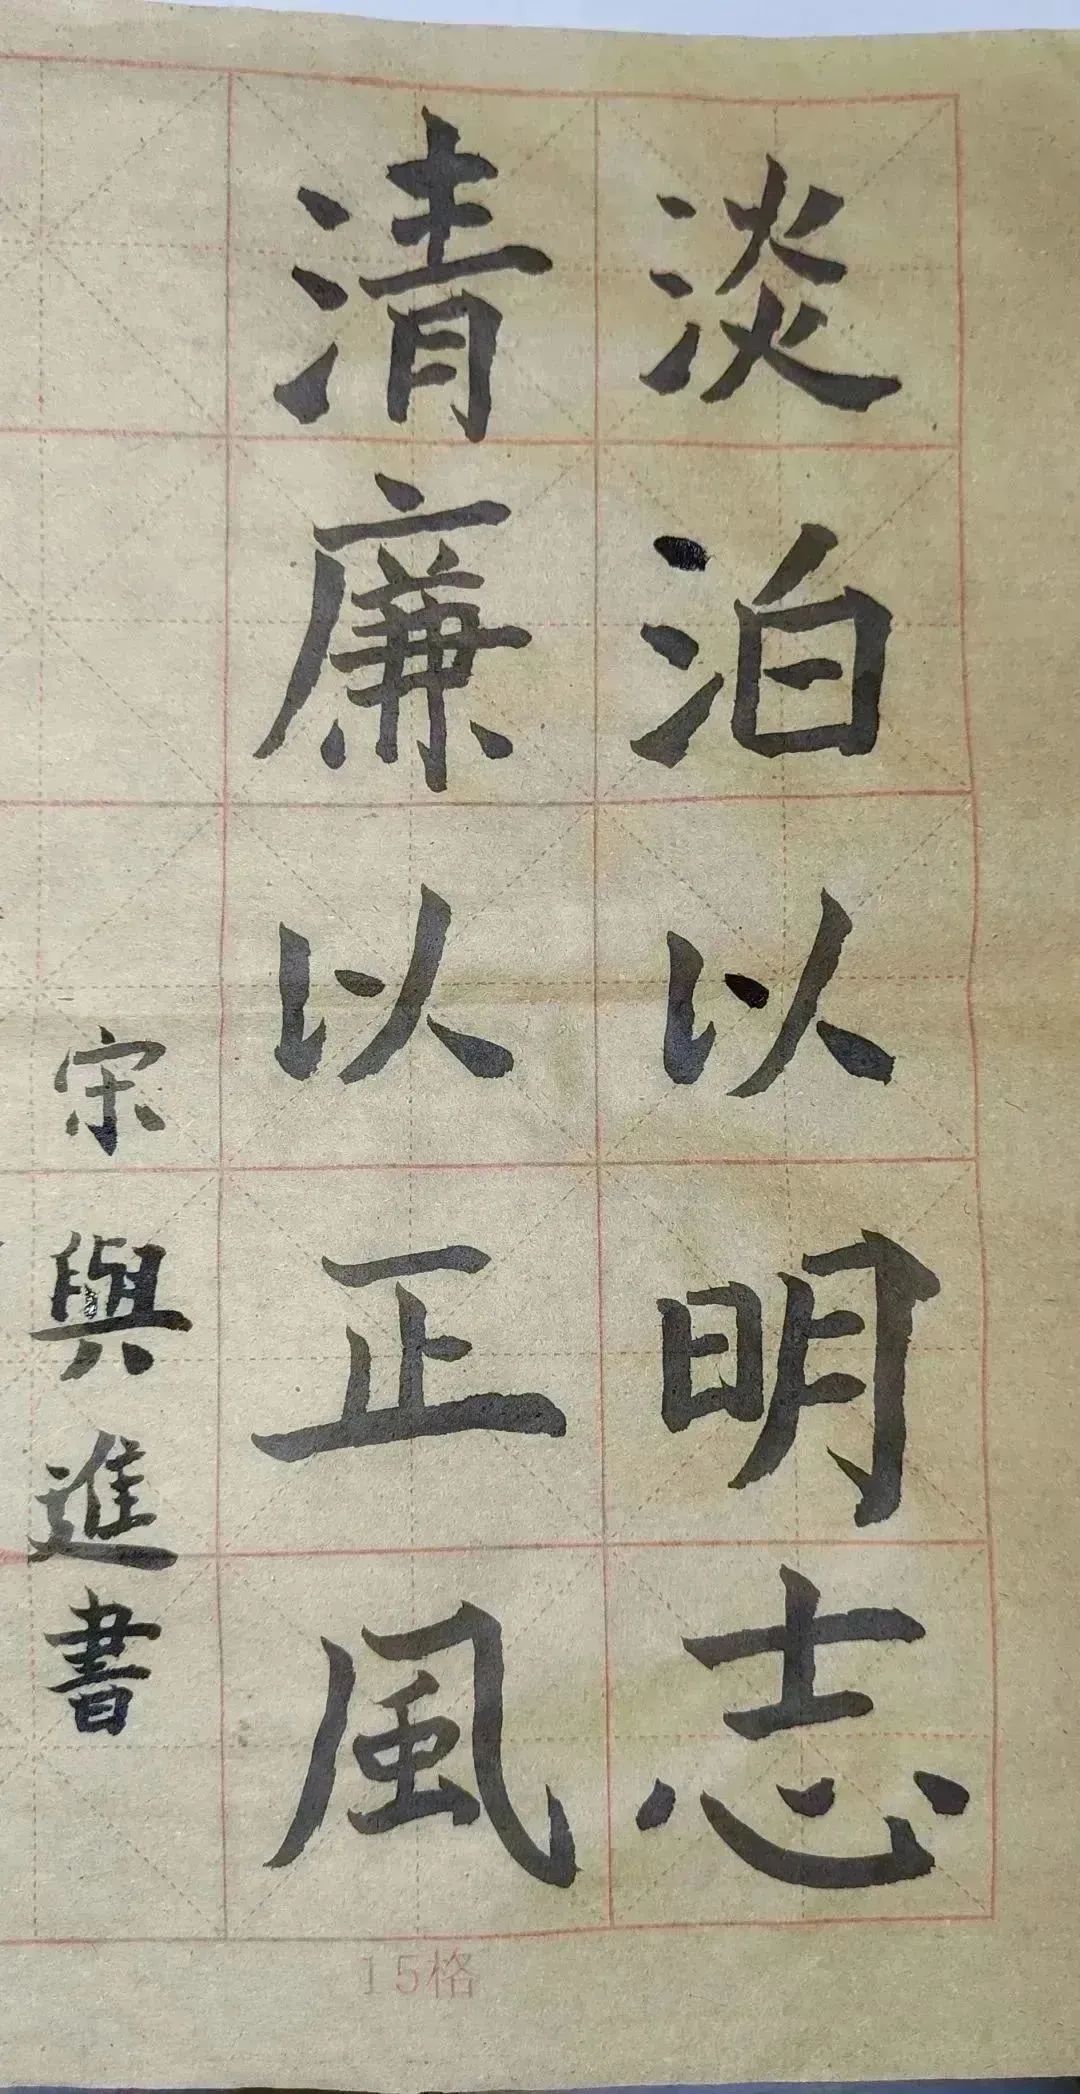 淡泊以明志
清廉以正風
宋與進書
15格